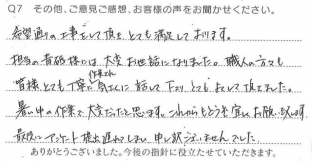 Q7 その他、ご意見ご感想、お客様の声をお聞かせください。
希望通りの工事をして頂き とても満足しております。
担当の 様には 大変お世話になりました。職人の方々も
皆様とても丁寧に 気さくに 話して下さり とてもよくして頂きました。
暑い中の作業で 大変だったと思います。これからもどうぞ宜しくお願い致します。
最後に アンケート提出遅れてしまい 申し訳ございませんでした。
ありがとうございました。今後の指針に役立たせていただきます。